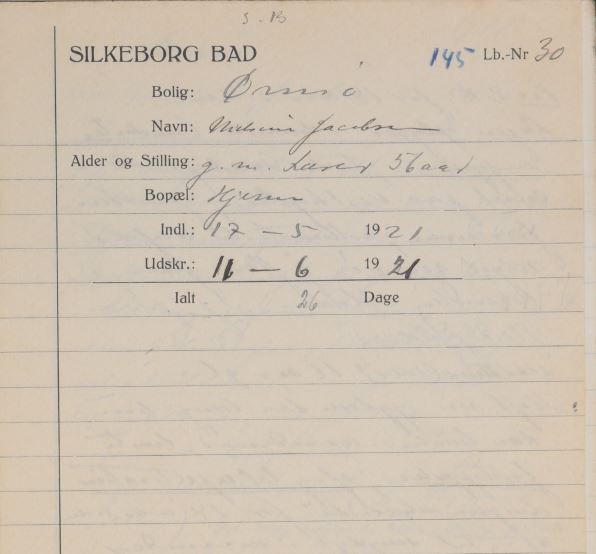 S. B
SILKEBORG BAD 145 Lb.-Nr 30
Bolig: Ørnsö
Navn: Nielsine Jacobsen
Alder og Stilling: g. m. Lærer 56 aar
Bopæl: Hjerm
Indl.: 17 – 5 1921
Udskr.: 11 – 6 1921
Ialt 26 Dage